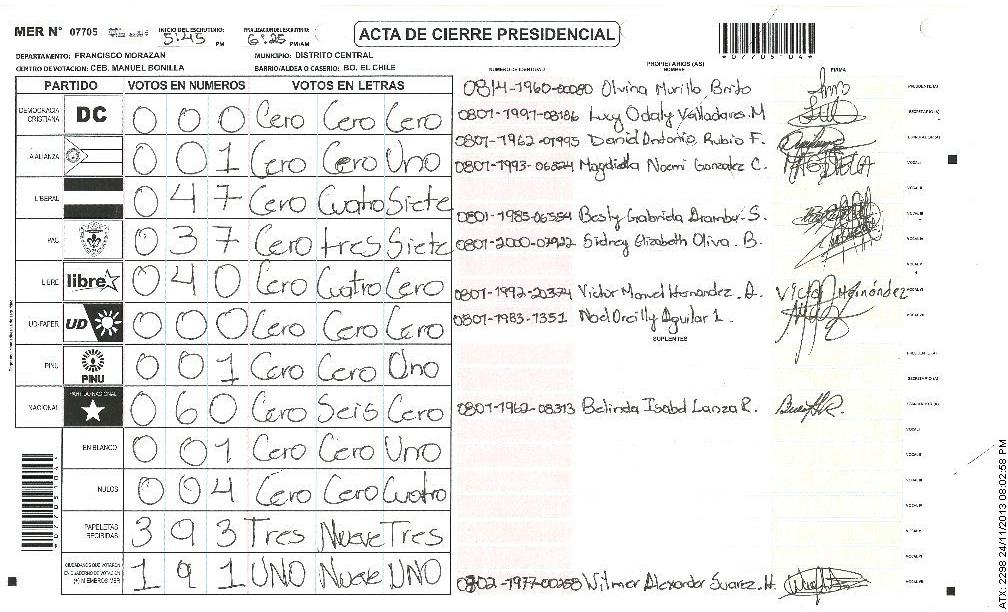 MER N° 07705 INICIO DEL ESCRUTINIO: 5:45 PM FINALIZACION DEL ESCRUTINIO: 6:25 PM/AM
ACTA DE CIERRE PRESIDENCIAL
*07705-04*
DEPARTAMENTO: FRANCISCO MORAZAN MUNICIPIO: DISTRITO CENTRAL
CENTRO DE VOTACION: CEB. MANUEL BONILLA BARRIO/ALDEA O CASERIO: BO. EL CHILE
NUMERO DE IDENTIDAD PROPIETARIOS (AS) NOMBRE FIRMA
PARTIDO VOTOS EN NUMEROS VOTOS EN LETRAS
DEMOCRACIA CRISTIANA DC 0 0 0 Cero Cero Cero
LA ALIANZA 0 0 1 Cero Cero Uno
LIBERAL 0 4 7 Cero Cuatro Siete
PAC 0 3 7 Cero tres Siete
LIBRE libre 0 4 0 Cero Cuatro Cero
UD-FAPER UD 0 0 0 Cero Cero Cero
PINU PINU 0 0 1 Cero Cero Uno
NACIONAL PARTIDO NACIONAL 0 6 0 Cero Seis Cero
EN BLANCO 0 0 1 Cero Cero Uno
NULOS 0 0 4 Cero Cero Cuatro
PAPELETAS RECIBIDAS 3 9 3 Tres Nueve Tres
CIUDADANOS QUE VOTARON EN CUADERNO DE VOTACION (+) MIEMBROS MER 1 9 1 UNO Nueve UNO
0814-1960-00080 Olvina Murillo Brito PRESIDENTE(A)
0801-1997-08186 Lucy Odaly Valladares.M SECRETARIO(A)
0801-1962-07995 Daniel Antonio Rubio F. ESCRUTADOR(A)
0801-1993-06324 Magdiella Noemi Gonzalez C. VOCAL I
0801-1985-06554 Besty Gabriela Aramby. S. VOCAL III
0801-2000-07922 Sidney Elizabeth Oliva. B. VOCAL IV
0801-1992-20374 Victor Manuel Hernandez. A. Victor Hernández VOCAL VI
0801-1983-1351 Noel Oreilly Aguilar L. VOCAL VII
SUPLENTES
PRESIDENTE(A)
SECRETARIO(A)
0801-1962-08313 Belinda Isabel Lanza R. ESCRUTADOR(A)
VOCAL I
VOCAL II
VOCAL III
VOCAL IV
VOCAL V
VOCAL VI
0702-1977-00258 Wilmer Alexander Suarez. H. VOCAL VII
*07705-04*
ATX-2298 24/11/2013 08:02:58 PM